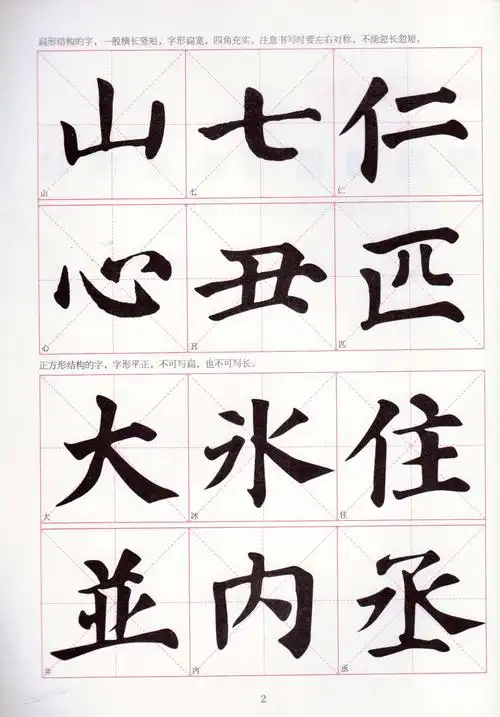 扁形结构的字，一般横长竖短，字形扁宽，四角充实。注意书写时要左右对称，不能忽长忽短。
山 七 仁
山 七 仁
心 丑 匹
心 丑 匹
正方形结构的字，字形平正，不可写扁，也不可写长。
大 氷 住
大 冰 住
並 内 丞
并 内 丞
2